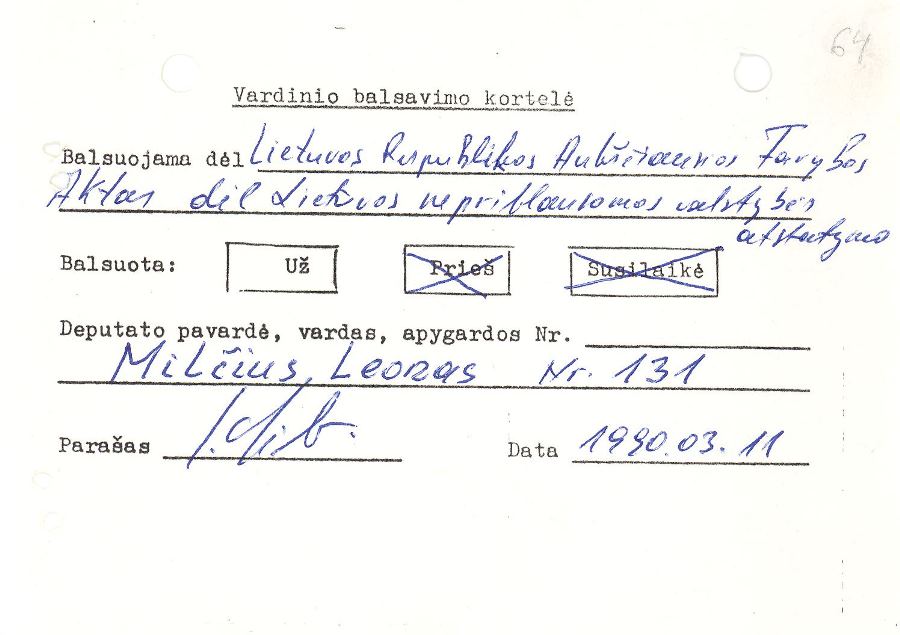 64
Vardinio balsavimo kortelė
Balsuojama dėl Lietuvos Respublikos Aukščiausios Tarybos
Aktas dėl Lietuvos nepriklausomos valstybės
atstatymo
Balsuota: Už Prieš Susilaikė
Deputato pavardė, vardas, apygardos Nr.
Milčius, Leonas Nr. 131
Parašas Data 1990.03.11